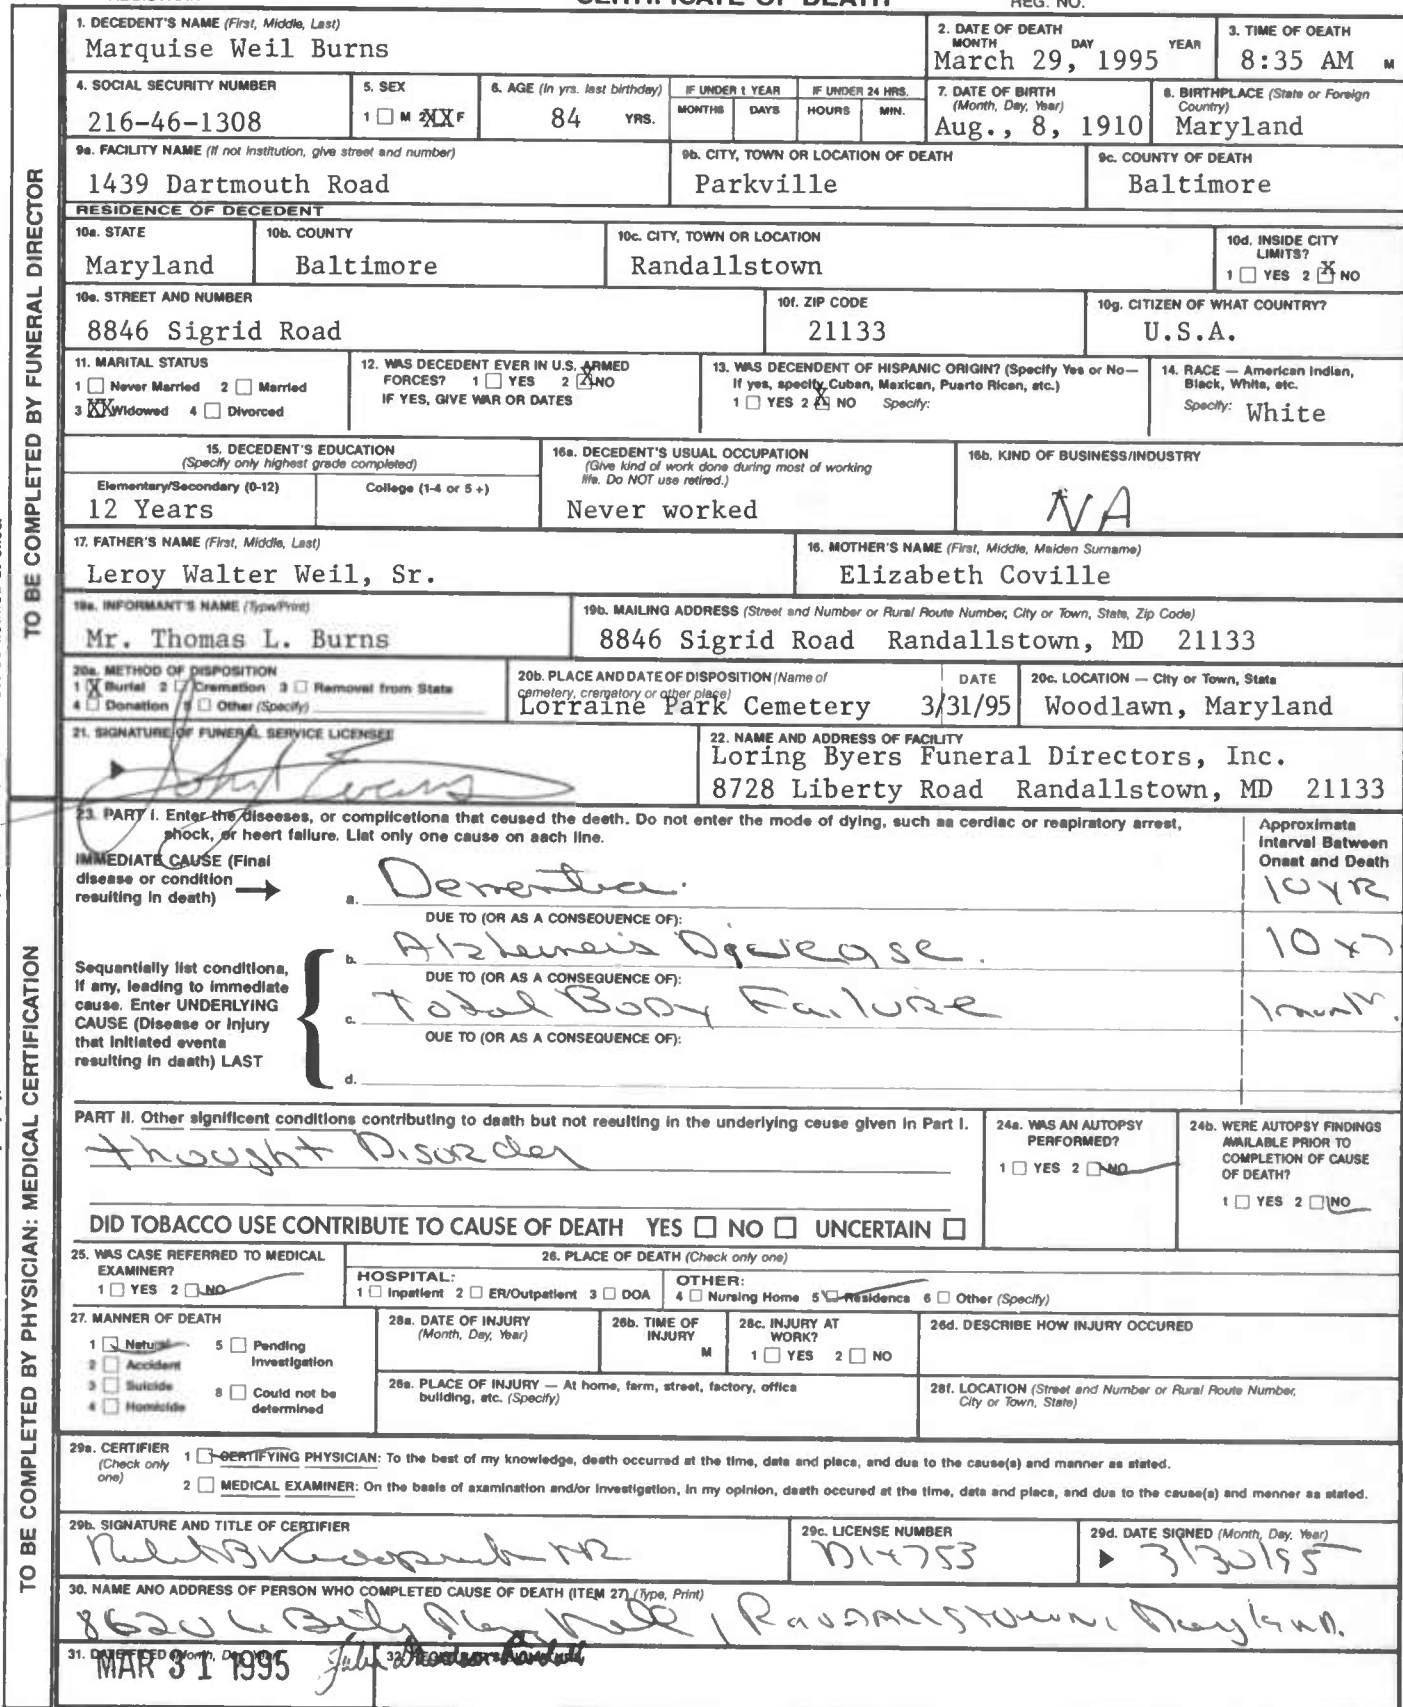 CERTIFICATE OF DEATH
REG. NO.
1. DECEDENT'S NAME (First, Middle, Last)
Marquise Weil Burns
2. DATE OF DEATH
MONTH DAY YEAR
March 29, 1995
3. TIME OF DEATH
8:35 AM M
4. SOCIAL SECURITY NUMBER
216-46-1308
5. SEX
1 M 2 XX F
6. AGE (In yrs. last birthday)
84 YRS.
IF UNDER 1 YEAR
MONTHS DAYS
IF UNDER 24 HRS.
HOURS MIN.
7. DATE OF BIRTH
(Month, Day, Year)
Aug., 8, 1910
8. BIRTHPLACE (State or Foreign
Country)
Maryland
9a. FACILITY NAME (If not institution, give street and number)
1439 Dartmouth Road
9b. CITY, TOWN OR LOCATION OF DEATH
Parkville
9c. COUNTY OF DEATH
Baltimore
RESIDENCE OF DECEDENT
10a. STATE
Maryland
10b. COUNTY
Baltimore
10c. CITY, TOWN OR LOCATION
Randallstown
10d. INSIDE CITY
LIMITS?
1 YES 2 X NO
10e. STREET AND NUMBER
8846 Sigrid Road
10f. ZIP CODE
21133
10g. CITIZEN OF WHAT COUNTRY?
U.S.A.
11. MARITAL STATUS
1 Never Married 2 Married
3 XX Widowed 4 Divorced
12. WAS DECEDENT EVER IN U.S. ARMED
FORCES? 1 YES 2 X NO
IF YES, GIVE WAR OR DATES
13. WAS DECENDENT OF HISPANIC ORIGIN? (Specify Yes or No—
If yes, specify Cuban, Mexican, Puerto Rican, etc.)
1 YES 2 X NO Specify:
14. RACE — American Indian,
Black, White, etc.
Specify: White
15. DECEDENT'S EDUCATION
(Specify only highest grade completed)
Elementary/Secondary (0-12)
12 Years
College (1-4 or 5+)
16a. DECEDENT'S USUAL OCCUPATION
(Give kind of work done during most of working
life. Do NOT use retired.)
Never worked
16b. KIND OF BUSINESS/INDUSTRY
NA
17. FATHER'S NAME (First, Middle, Last)
Leroy Walter Weil, Sr.
16. MOTHER'S NAME (First, Middle, Maiden Surname)
Elizabeth Coville
19a. INFORMANT'S NAME (Type/Print)
Mr. Thomas L. Burns
19b. MAILING ADDRESS (Street and Number or Rural Route Number, City or Town, State, Zip Code)
8846 Sigrid Road Randallstown, MD 21133
20a. METHOD OF DISPOSITION
1 X Burial 2 Cremation 3 Removal from State
4 Donation 5 Other (Specify)
20b. PLACE AND DATE OF DISPOSITION (Name of
cemetery, crematory or other place)
Lorraine Park Cemetery
DATE
3/31/95
20c. LOCATION — City or Town, State
Woodlawn, Maryland
21. SIGNATURE OF FUNERAL SERVICE LICENSEE
Evans
22. NAME AND ADDRESS OF FACILITY
Loring Byers Funeral Directors, Inc.
8728 Liberty Road Randallstown, MD 21133
TO BE COMPLETED BY FUNERAL DIRECTOR
23. PART I. Enter the diseases, or complications that caused the death. Do not enter the mode of dying, such as cardiac or respiratory arrest,
shock, or heart failure. List only one cause on each line.
Approximate
Interval Between
Onset and Death
IMMEDIATE CAUSE (Final
disease or condition
resulting in death)
a. Dementia. 10 YR
DUE TO (OR AS A CONSEQUENCE OF):
Sequentially list conditions,
if any, leading to immediate
cause. Enter UNDERLYING
CAUSE (Disease or injury
that initiated events
resulting in death) LAST
b. Alzhemeis Disease. 10
DUE TO (OR AS A CONSEQUENCE OF):
c. Total Body Failure 1 month.
DUE TO (OR AS A CONSEQUENCE OF):
d.
PART II. Other significant conditions contributing to death but not resulting in the underlying cause given in Part I.
thought Disorder
24a. WAS AN AUTOPSY
PERFORMED?
1 YES 2 NO
24b. WERE AUTOPSY FINDINGS
AVAILABLE PRIOR TO
COMPLETION OF CAUSE
OF DEATH?
1 YES 2 NO
DID TOBACCO USE CONTRIBUTE TO CAUSE OF DEATH YES NO UNCERTAIN
25. WAS CASE REFERRED TO MEDICAL
EXAMINER?
1 YES 2 NO
26. PLACE OF DEATH (Check only one)
HOSPITAL:
1 Inpatient 2 ER/Outpatient 3 DOA
OTHER:
4 Nursing Home 5 Residence 6 Other (Specify)
27. MANNER OF DEATH
1 Natural 5 Pending
Investigation
2 Accident
3 Suicide 8 Could not be
determined
4 Homicide
28a. DATE OF INJURY
(Month, Day, Year)
26b. TIME OF
INJURY
M
28c. INJURY AT
WORK?
1 YES 2 NO
26d. DESCRIBE HOW INJURY OCCURED
26a. PLACE OF INJURY — At home, farm, street, factory, office
building, etc. (Specify)
28f. LOCATION (Street and Number or Rural Route Number,
City or Town, State)
29a. CERTIFIER
(Check only
one)
1 CERTIFYING PHYSICIAN: To the best of my knowledge, death occurred at the time, date and place, and due to the cause(s) and manner as stated.
2 MEDICAL EXAMINER: On the basis of examination and/or investigation, in my opinion, death occured at the time, date and place, and due to the cause(s) and manner as stated.
29b. SIGNATURE AND TITLE OF CERTIFIER
29c. LICENSE NUMBER
D14753
29d. DATE SIGNED (Month, Day, Year)
3/30/95
30. NAME AND ADDRESS OF PERSON WHO COMPLETED CAUSE OF DEATH (ITEM 27) (Type, Print)
Randallstown, Maryland.
31. DATE FILED (Month, Day, Year)
MAR 31 1995
32.
TO BE COMPLETED BY PHYSICIAN: MEDICAL CERTIFICATION